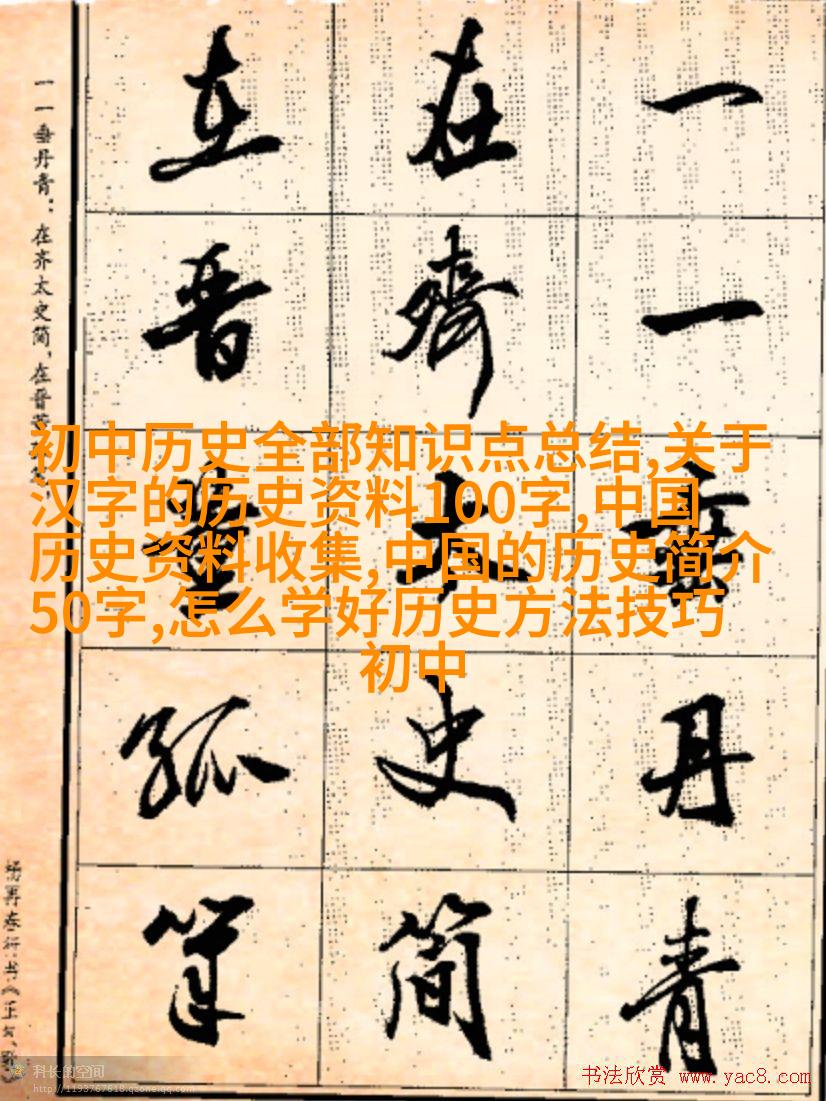 一一垂丹青
在齊太史简
在晋董狐笔
一一垂丹青：在齐太史简，在晋
初中历史全部知识点总结,关于
汉字的历史资料100字,中国
历史资料收集,中国的历史简介
50字,怎么学好历史方法技巧
初中
科长的空间
http://1193767618.qzone.qq.com
书法欣赏 www.yac8.com